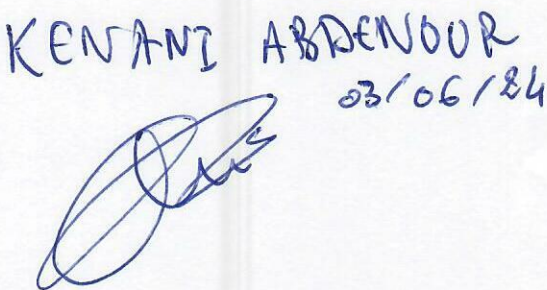 KENANI ABDENOUR
03/06/24